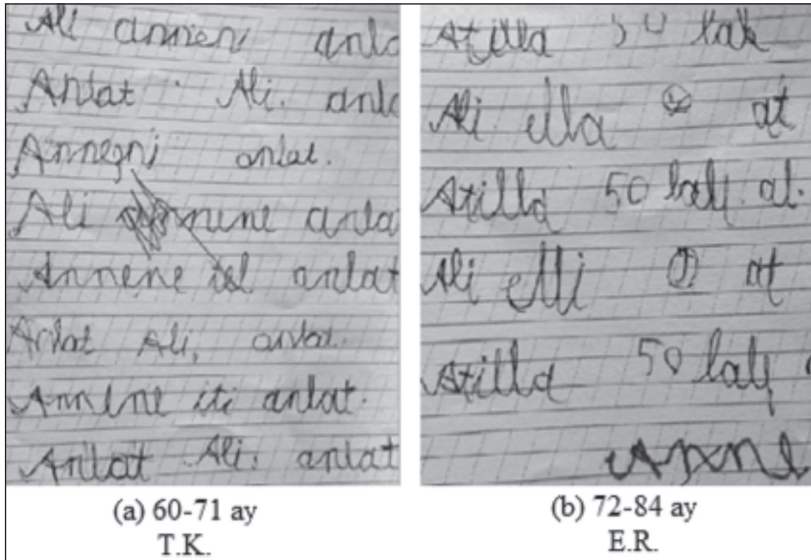 Ali annen anla
Anlat Ali. anla
Annegni anlat.
Ali annene anla
Annene iel anlat
Anlat Ali, anlat.
Annene iti anlat.
Anlat Ali. anlat
(a) 60-71 ay
T.K.
Atilla 50 lalı
Ali ella at
Atilla 50 lalı al.
Ali elli at
Atilla 50 lalı
(b) 72-84 ay
E.R.